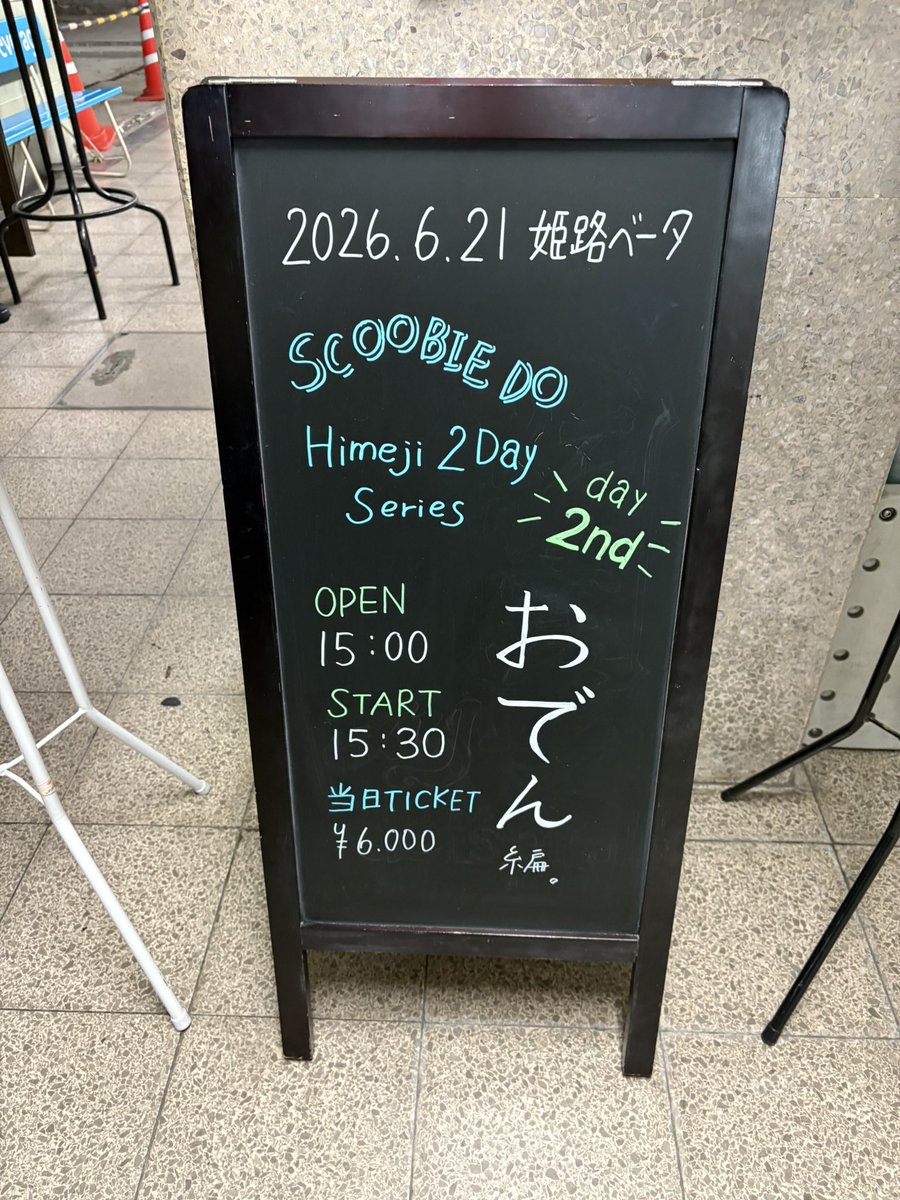 2026.6.21 姫路ベータ
SCOOBIE DO
Himeji 2Day
Series
day
2nd
OPEN
15:00
START
15:30
当日TICKET
¥6.000
おでん
編。